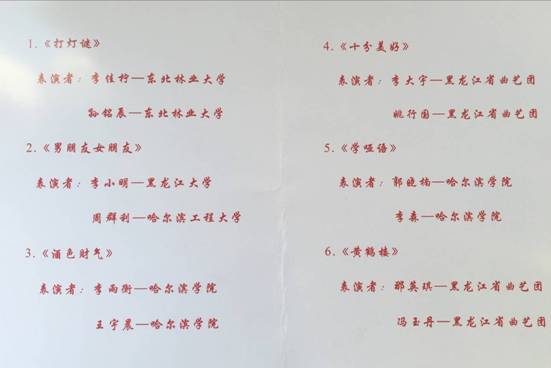 1.《打灯谜》
表演者：李佳柠—东北林业大学
孙铭辰—东北林业大学
2.《男朋友女朋友》
表演者：李小明—黑龙江大学
周群利—哈尔滨工程大学
3.《酒色财气》
表演者：李雨衡—哈尔滨学院
王宇晨—哈尔滨学院
4.《十分美好》
表演者：李大宇—黑龙江省曲艺团
姚行国—黑龙江省曲艺团
5.《学哑语》
表演者：郭晓楠—哈尔滨学院
李森—哈尔滨学院
6.《黄鹤楼》
表演者：那英琪—黑龙江省曲艺团
冯玉丹—黑龙江省曲艺团